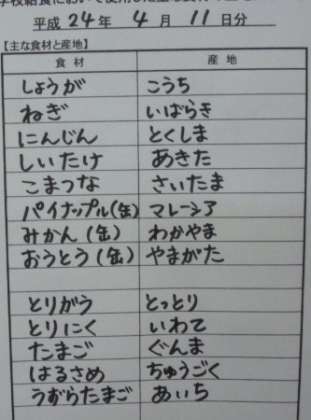 学校給食において使用した主な食材の産地
平成 24 年 4 月 11 日分
【主な食材と産地】
食材 産地
しょうが こうち
ねぎ いばらき
にんじん とくしま
しいたけ あきた
こまつな さいたま
パイナップル(缶) マレーシア
みかん(缶) わかやま
おうとう(缶) やまがた
とりがら とっとり
とりにく いわて
たまご ぐんま
はるさめ ちゅうごく
うずらたまご あいち